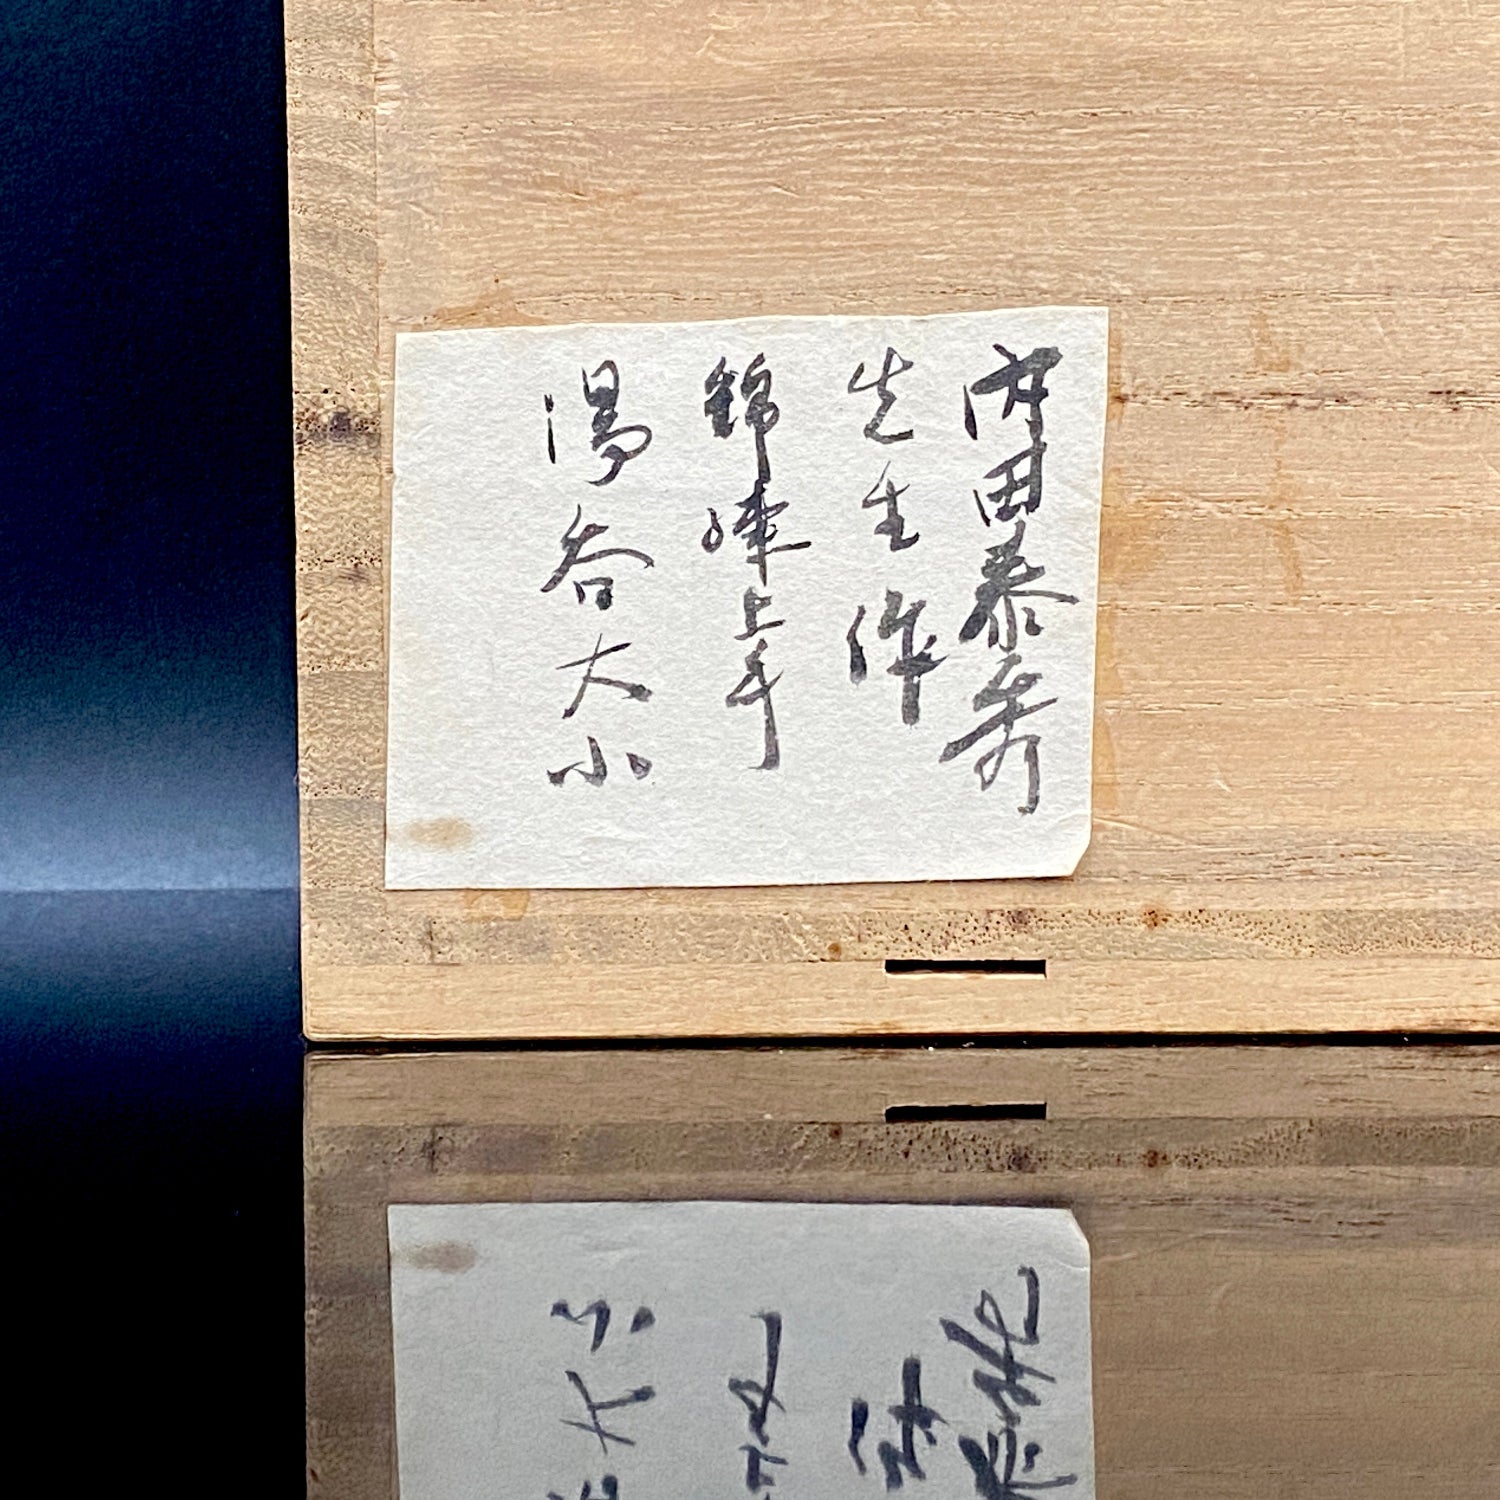 田泰秀
先生作
錦上手
湯呑大小